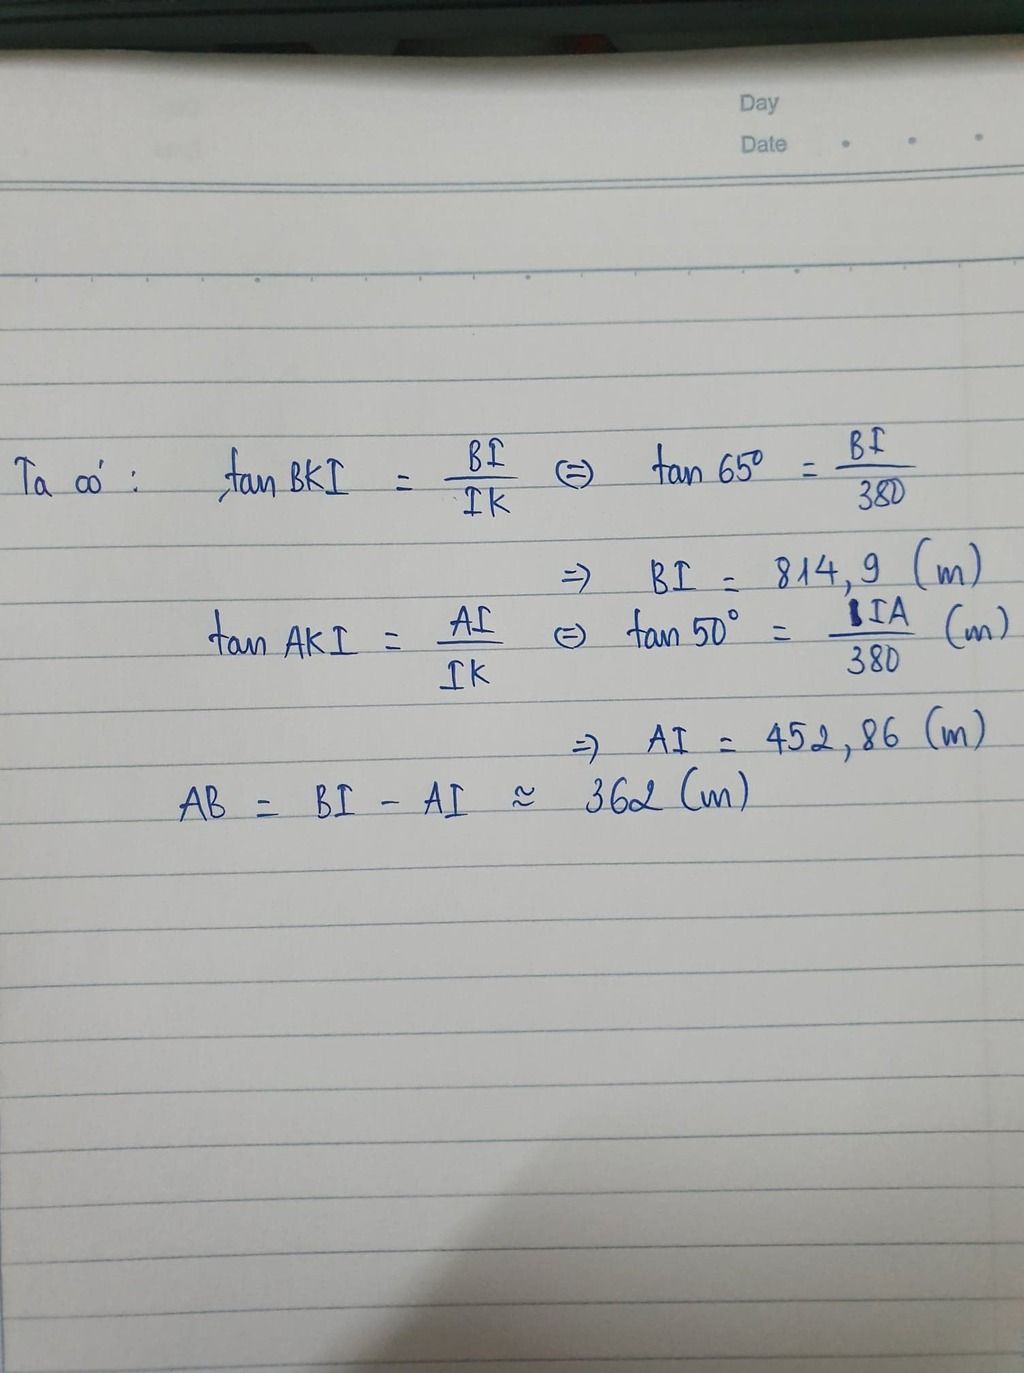 Day
Date
Ta có: tan BKI = BI/IK ⇔ tan 65° = BI/380
⇒ BI = 814,9 (m)
tan AKI = AI/IK ⇔ tan 50° = IA/380 (m)
⇒ AI = 452,86 (m)
AB = BI - AI ≈ 362 (m)